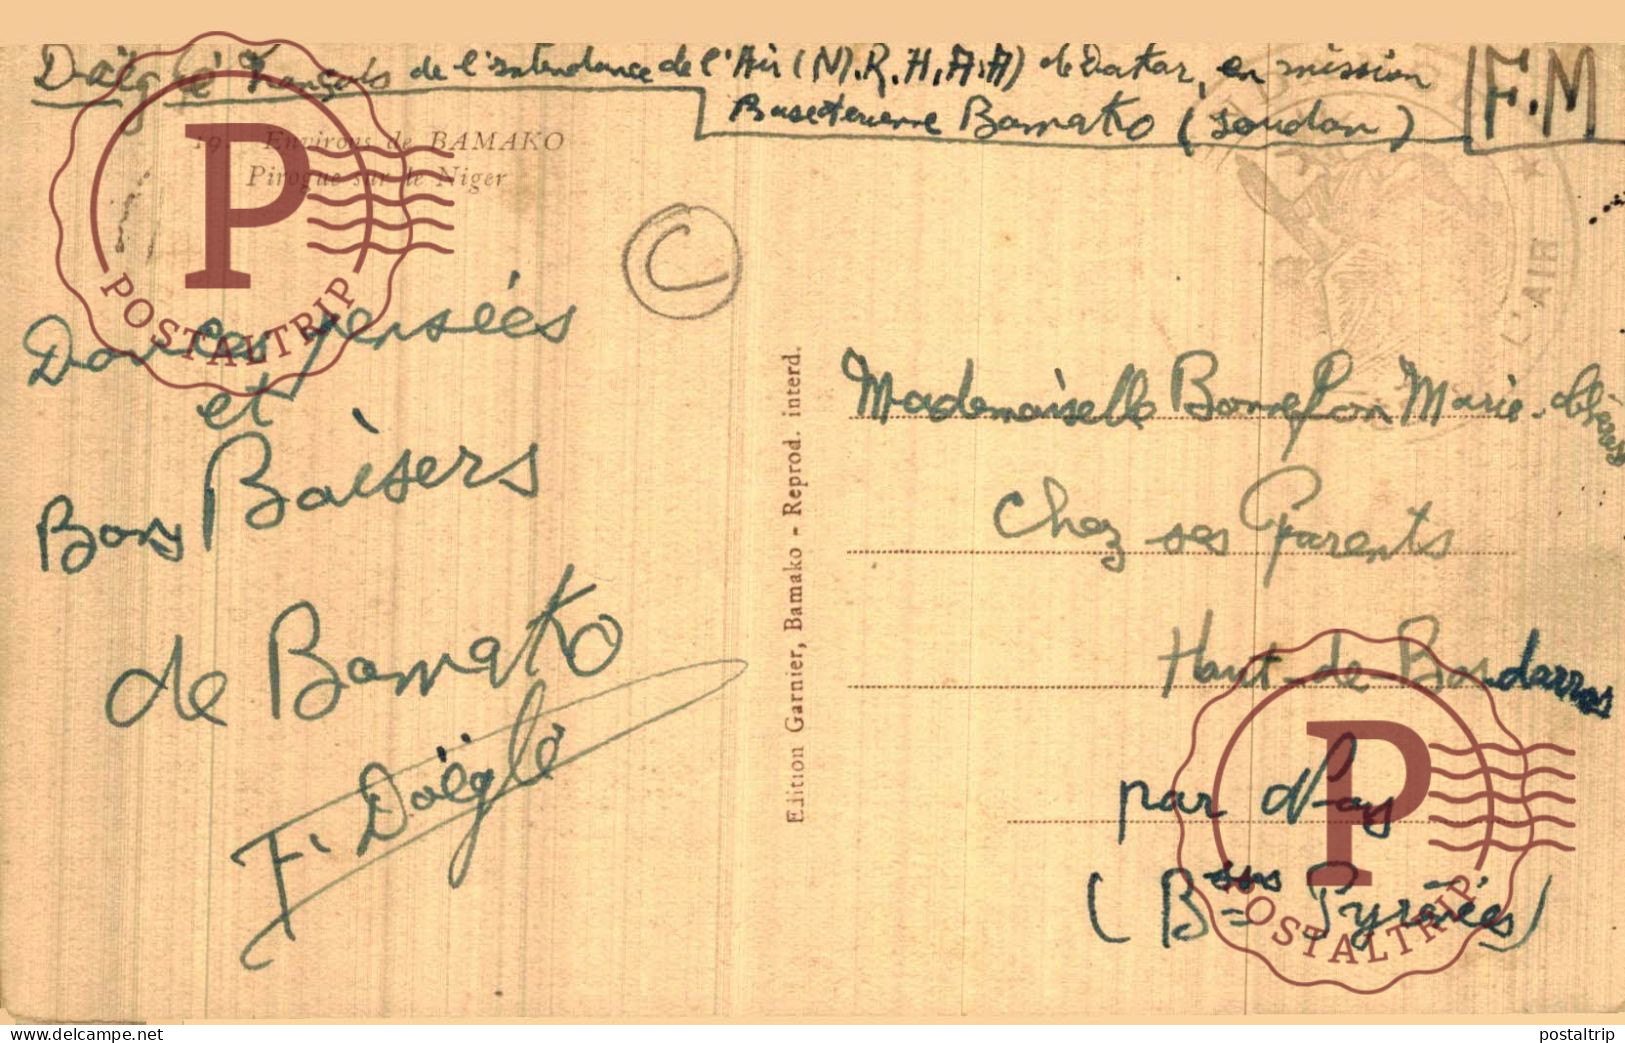 Daëglé François de l'intendance de l'Air (M.R.H.A.A) de Dakar, en mission
Base aérienne Bamako (Soudan)
F.M
19. Environs de BAMAKO
Pirogue sur le Niger
C
Douces pensées
et
Bons Baisers
de Bamako
F. Daëglé
Edition Garnier, Bamako - Reprod. interd.
L'AIR
Mademoiselle Bonnefon Marie-Thérèse
Chez ses Parents
Haut-de-Bosdarros
par Nay
(Bses Pyrénées)
P
POSTALTRIP
P
POSTALTRIP
www.delcampe.net
postaltrip